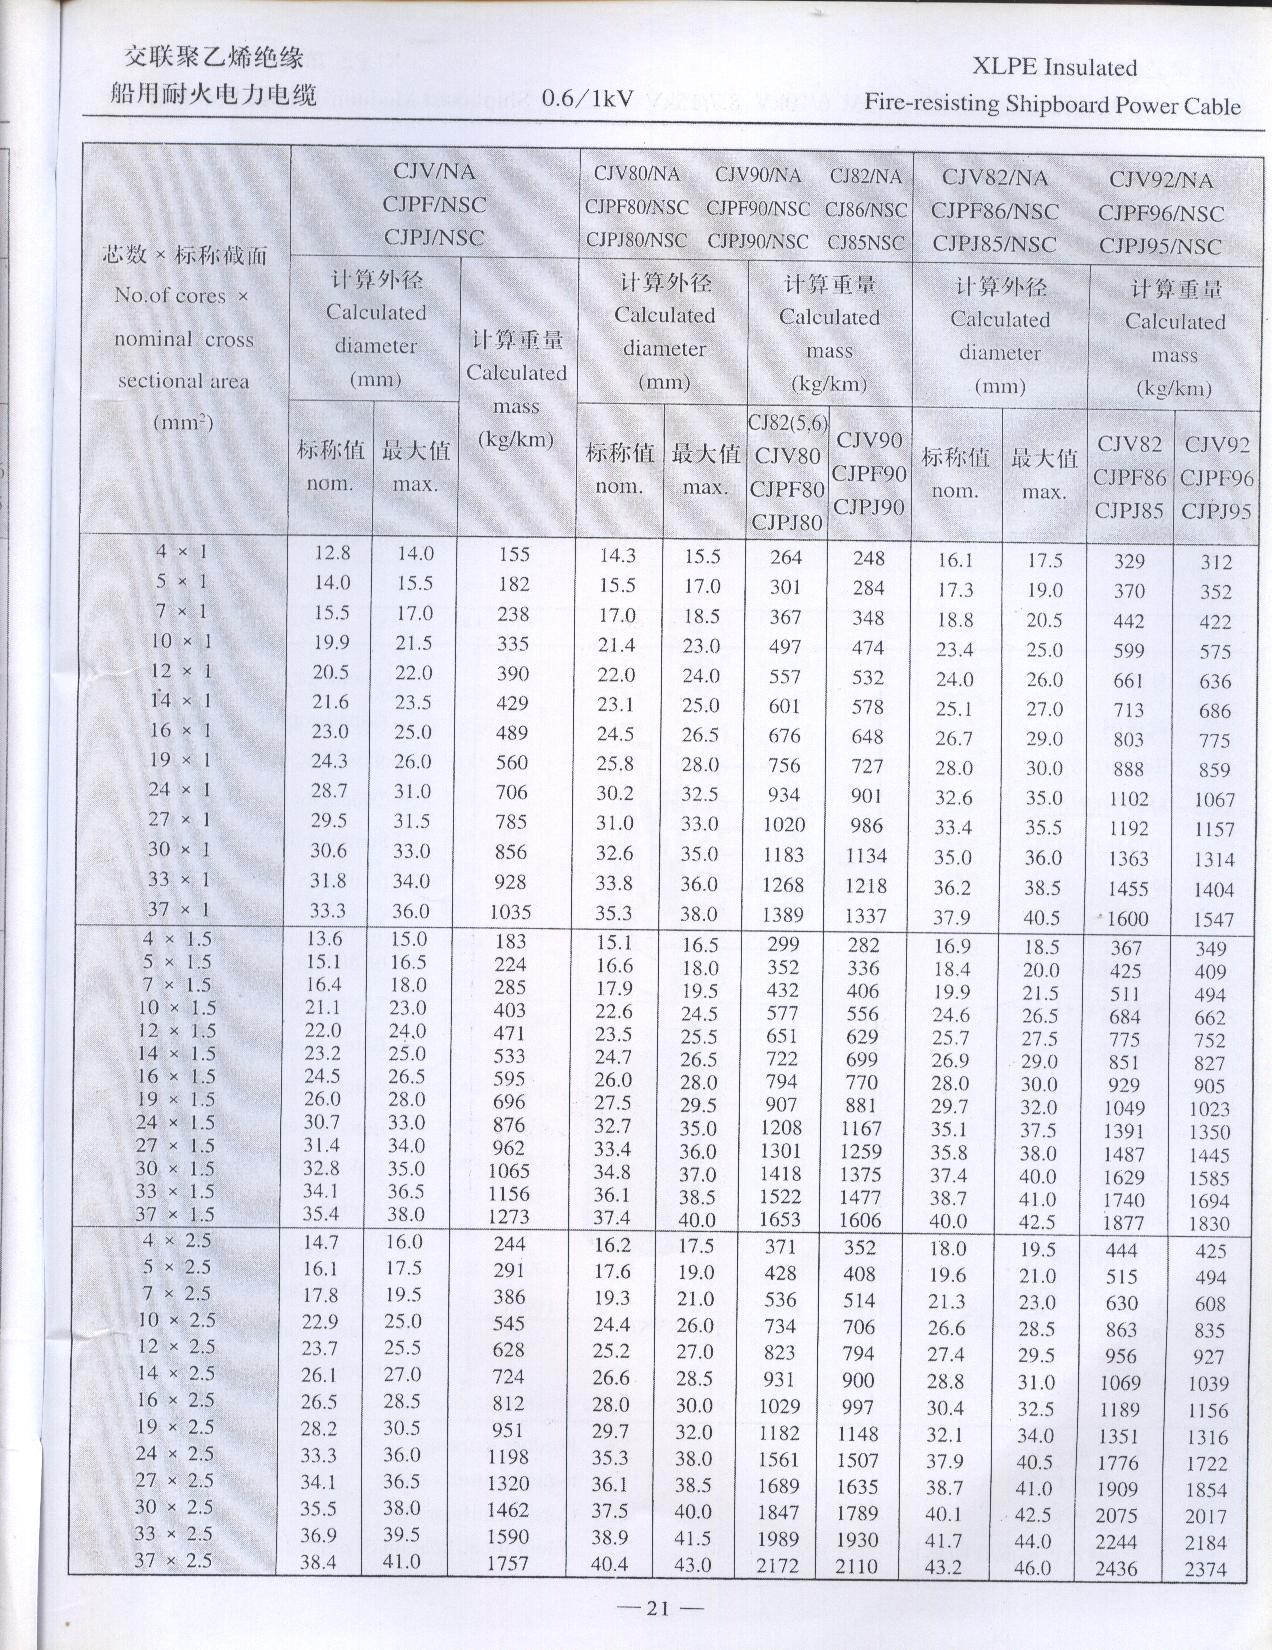 交联聚乙烯绝缘
船用耐火电力电缆
0.6/1kV
XLPE Insulated
Fire-resisting Shipboard Power Cable
芯数 × 标称截面
No.of cores ×
nominal cross
sectional area
(mm²)
CJV/NA
CJPF/NSC
CJPJ/NSC
CJV80/NA CJV90/NA CJ82/NA
CJPF80/NSC CJPF90/NSC CJ86/NSC
CJPJ80/NSC CJPJ90/NSC CJ85NSC
CJV82/NA CJV92/NA
CJPF86/NSC CJPF96/NSC
CJPJ85/NSC CJPJ95/NSC
计算外径
Calculated
diameter
(mm)
计算重量
Calculated
mass
(kg/km)
计算外径
Calculated
diameter
(mm)
计算重量
Calculated
mass
(kg/km)
计算外径
Calculated
diameter
(mm)
计算重量
Calculated
mass
(kg/km)
标称值
nom.
最大值
max.
标称值
nom.
最大值
max.
CJ82(5,6)
CJV80
CJPF80
CJPJ80
CJV90
CJPF90
CJPJ90
标称值
nom.
最大值
max.
CJV82
CJPF86
CJPJ85
CJV92
CJPF96
CJPJ95
4 × 1 12.8 14.0 155 14.3 15.5 264 248 16.1 17.5 329 312
5 × 1 14.0 15.5 182 15.5 17.0 301 284 17.3 19.0 370 352
7 × 1 15.5 17.0 238 17.0 18.5 367 348 18.8 20.5 442 422
10 × 1 19.9 21.5 335 21.4 23.0 497 474 23.4 25.0 599 575
12 × 1 20.5 22.0 390 22.0 24.0 557 532 24.0 26.0 661 636
14 × 1 21.6 23.5 429 23.1 25.0 601 578 25.1 27.0 713 686
16 × 1 23.0 25.0 489 24.5 26.5 676 648 26.7 29.0 803 775
19 × 1 24.3 26.0 560 25.8 28.0 756 727 28.0 30.0 888 859
24 × 1 28.7 31.0 706 30.2 32.5 934 901 32.6 35.0 1102 1067
27 × 1 29.5 31.5 785 31.0 33.0 1020 986 33.4 35.5 1192 1157
30 × 1 30.6 33.0 856 32.6 35.0 1183 1134 35.0 36.0 1363 1314
33 × 1 31.8 34.0 928 33.8 36.0 1268 1218 36.2 38.5 1455 1404
37 × 1 33.3 36.0 1035 35.3 38.0 1389 1337 37.9 40.5 1600 1547
4 × 1.5 13.6 15.0 183 15.1 16.5 299 282 16.9 18.5 367 349
5 × 1.5 15.1 16.5 224 16.6 18.0 352 336 18.4 20.0 425 409
7 × 1.5 16.4 18.0 285 17.9 19.5 432 406 19.9 21.5 511 494
10 × 1.5 21.1 23.0 403 22.6 24.5 577 556 24.6 26.5 684 662
12 × 1.5 22.0 24.0 471 23.5 25.5 651 629 25.7 27.5 775 752
14 × 1.5 23.2 25.0 533 24.7 26.5 722 699 26.9 29.0 851 827
16 × 1.5 24.5 26.5 595 26.0 28.0 794 770 28.0 30.0 929 905
19 × 1.5 26.0 28.0 696 27.5 29.5 907 881 29.7 32.0 1049 1023
24 × 1.5 30.7 33.0 876 32.7 35.0 1208 1167 35.1 37.5 1391 1350
27 × 1.5 31.4 34.0 962 33.4 36.0 1301 1259 35.8 38.0 1487 1445
30 × 1.5 32.8 35.0 1065 34.8 37.0 1418 1375 37.4 40.0 1629 1585
33 × 1.5 34.1 36.5 1156 36.1 38.5 1522 1477 38.7 41.0 1740 1694
37 × 1.5 35.4 38.0 1273 37.4 40.0 1653 1606 40.0 42.5 1877 1830
4 × 2.5 14.7 16.0 244 16.2 17.5 371 352 18.0 19.5 444 425
5 × 2.5 16.1 17.5 291 17.6 19.0 428 408 19.6 21.0 515 494
7 × 2.5 17.8 19.5 386 19.3 21.0 536 514 21.3 23.0 630 608
10 × 2.5 22.9 25.0 545 24.4 26.0 734 706 26.6 28.5 863 835
12 × 2.5 23.7 25.5 628 25.2 27.0 823 794 27.4 29.5 956 927
14 × 2.5 26.1 27.0 724 26.6 28.5 931 900 28.8 31.0 1069 1039
16 × 2.5 26.5 28.5 812 28.0 30.0 1029 997 30.4 32.5 1189 1156
19 × 2.5 28.2 30.5 951 29.7 32.0 1182 1148 32.1 34.0 1351 1316
24 × 2.5 33.3 36.0 1198 35.3 38.0 1561 1507 37.9 40.5 1776 1722
27 × 2.5 34.1 36.5 1320 36.1 38.5 1689 1635 38.7 41.0 1909 1854
30 × 2.5 35.5 38.0 1462 37.5 40.0 1847 1789 40.1 42.5 2075 2017
33 × 2.5 36.9 39.5 1590 38.9 41.5 1989 1930 41.7 44.0 2244 2184
37 × 2.5 38.4 41.0 1757 40.4 43.0 2172 2110 43.2 46.0 2436 2374
— 21 —